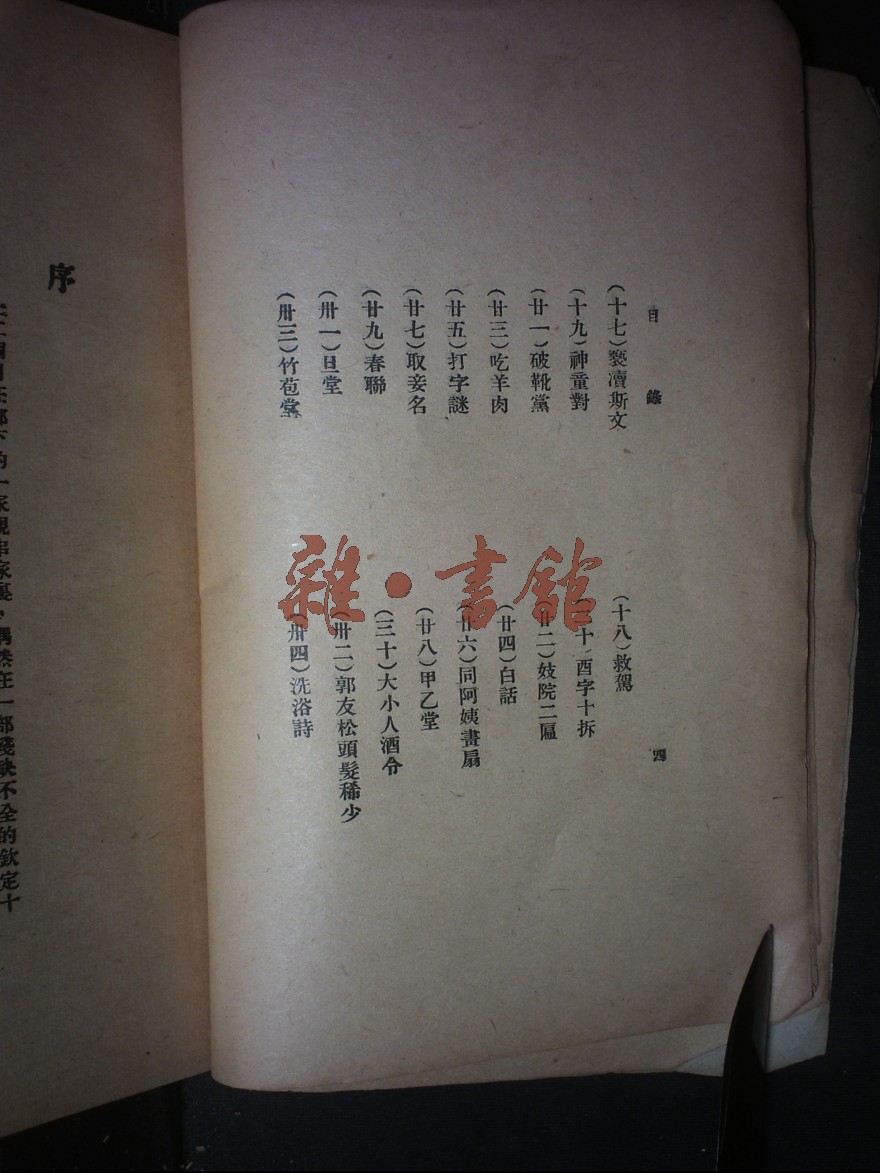 目錄
四
(十七)褻瀆斯文
(十八)救駕
(十九)神童對
(二十)酉字十拆
(廿一)破靴黨
(廿二)妓院二匾
(廿三)吃羊肉
(廿四)白話
(廿五)打字謎
(廿六)同阿姨書扇
(廿七)取妾名
(廿八)甲乙堂
(廿九)春聯
(三十)大小人酒令
(卅一)旦堂
(卅二)郭友松頭髮稀少
(卅三)竹苞堂
(卅四)洗浴詩
序
偶然在一部殘缺不全的欽定十
雜·書館